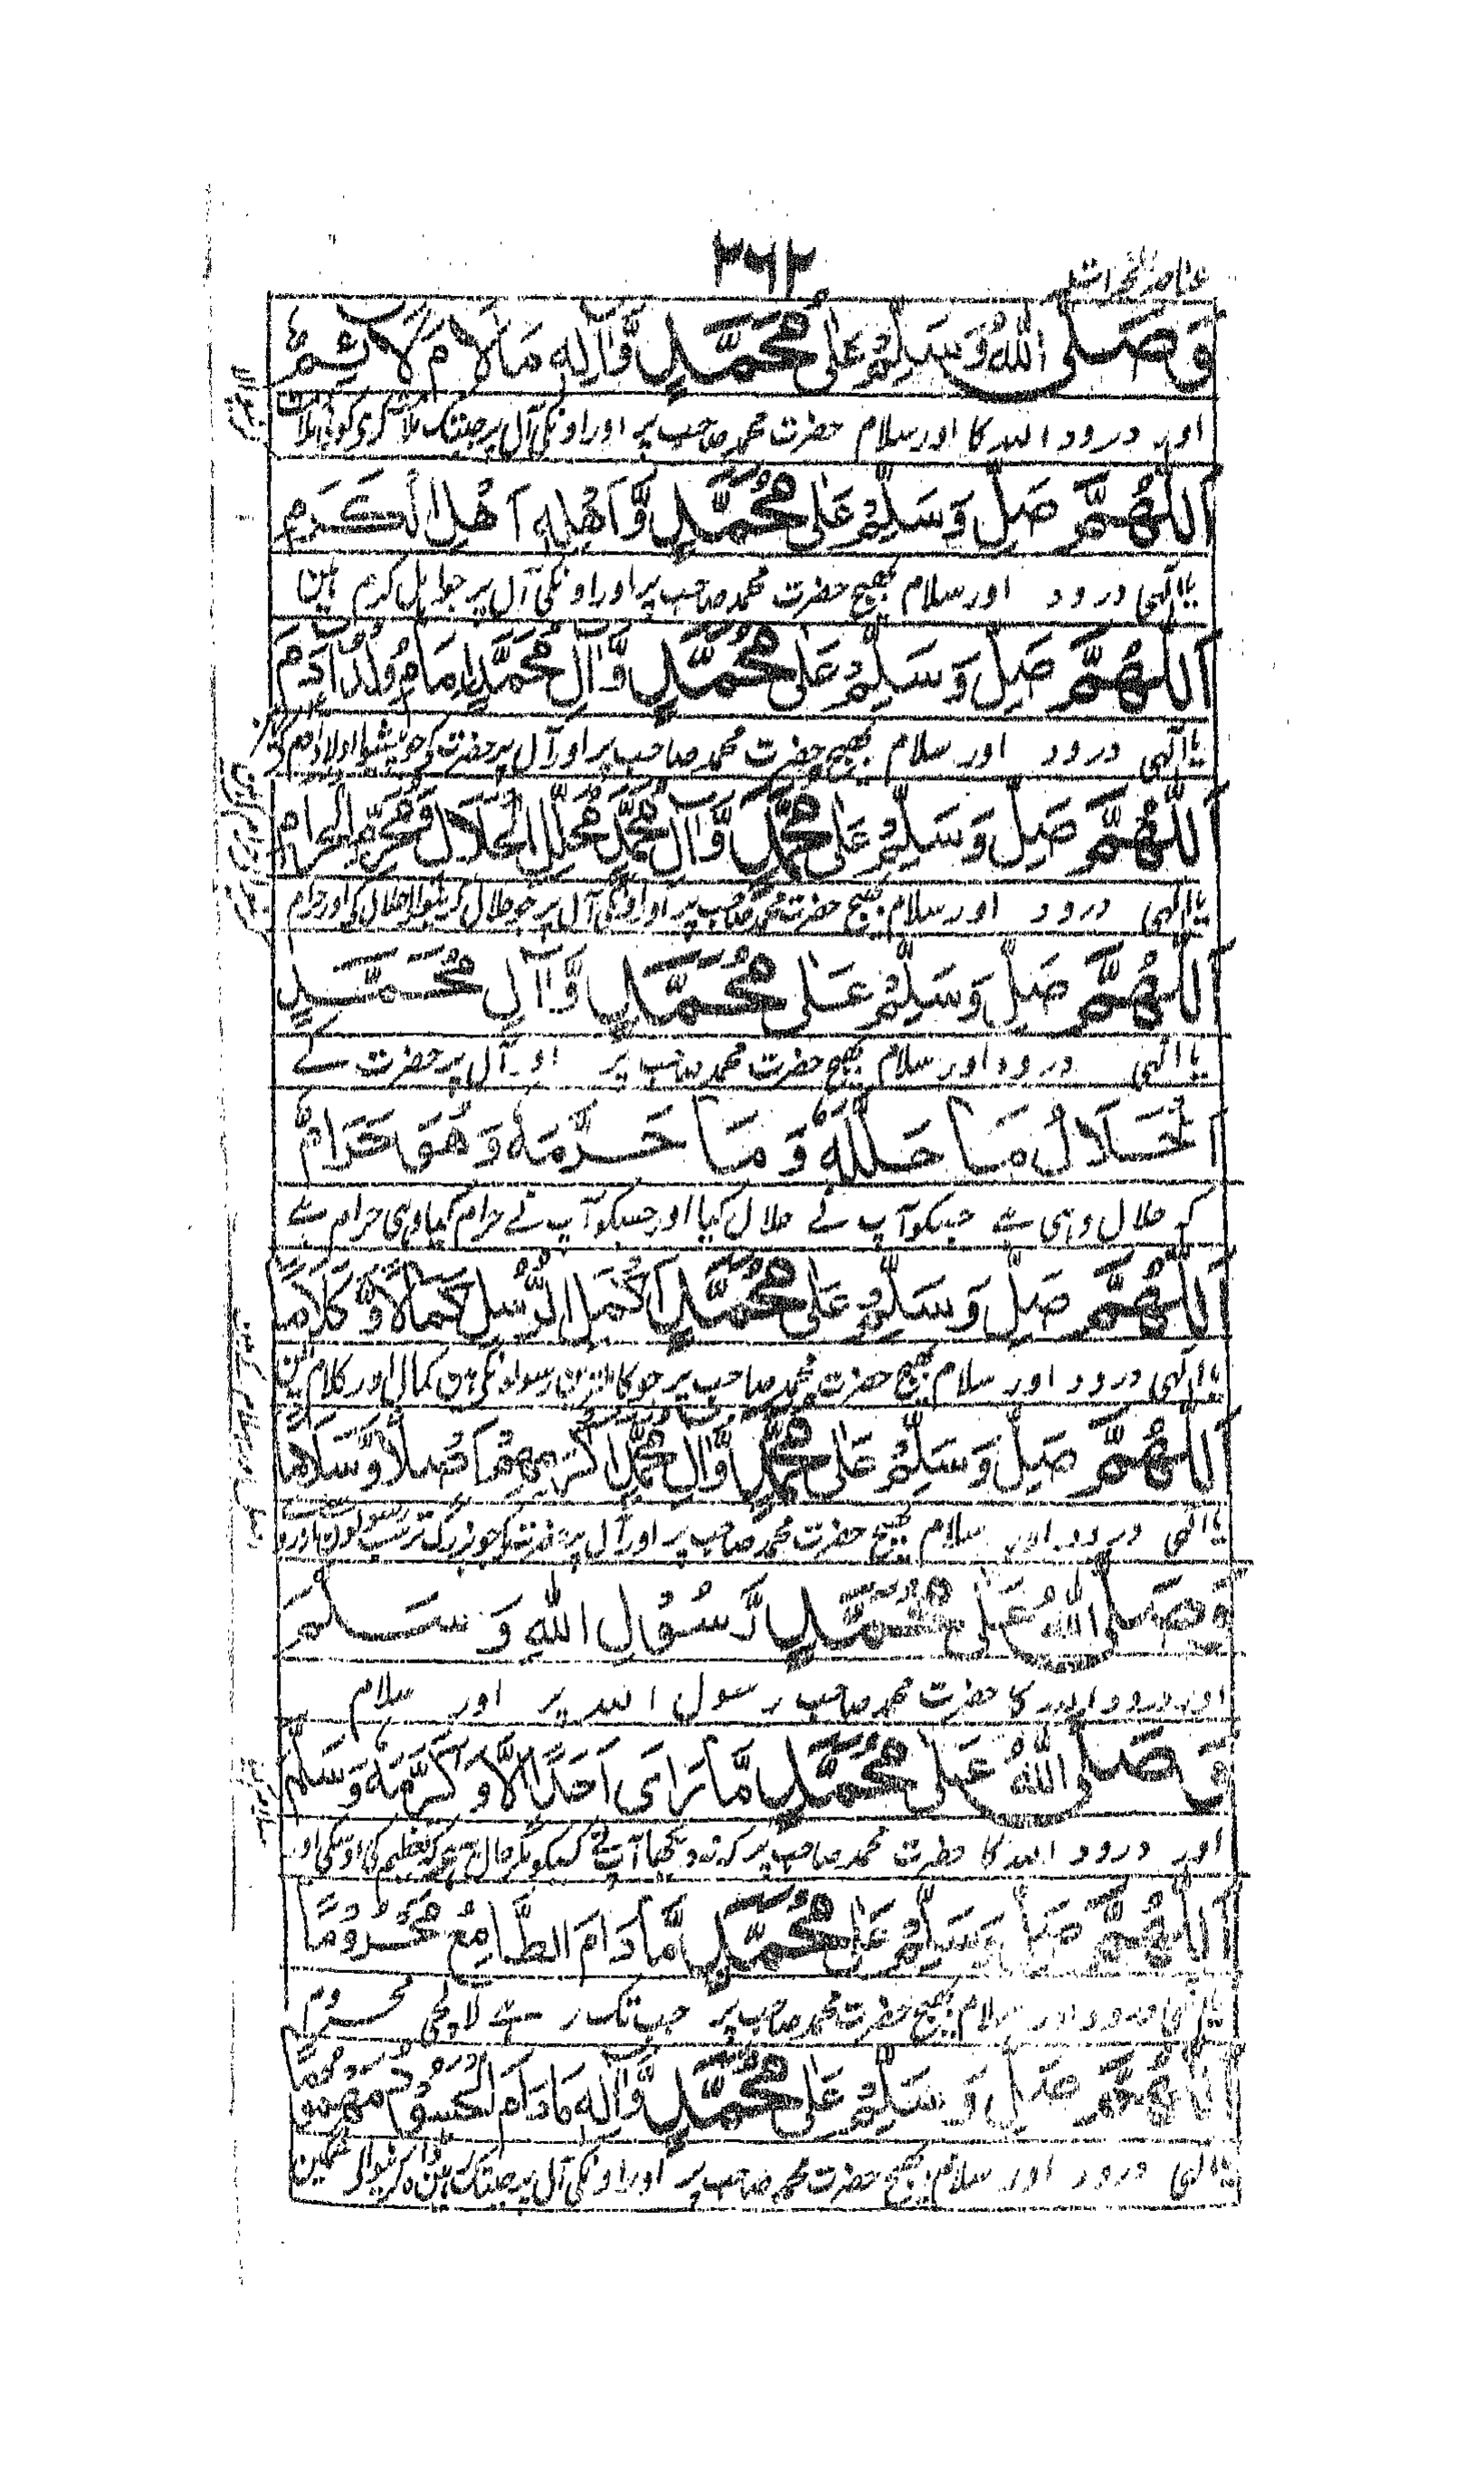 ۳۶۲
عناصر الخيرات
وَصَلَّى اللّٰهُ وَسَلِّمْ عَلٰى مُحَمَّدٍ وَّاٰلِهٖ مَا لَامَ لَائِمٌ
اور درود اللہ کا اور سلام حضرت محمد صاحب پر اور اونکی آل پر جبتک ملامت کری کوئی
اَللّٰهُمَّ صَلِّ وَسَلِّمْ عَلٰى مُحَمَّدٍ وَّاَهْلِهٖ اَهْلِ الْكَرَمِ
یا الٰہی درود اور سلام بھیج حضرت محمد صاحب پر اور اونکی آل پر جو اہل کرم ہین
اَللّٰهُمَّ صَلِّ وَسَلِّمْ عَلٰى مُحَمَّدٍ وَّاٰلِ مُحَمَّدٍ اِمَامِ وُلْدِ اٰدَمَ
یا الٰہی درود اور سلام بھیج حضرت محمد صاحب پر اور آل پر حضرت کی جو پیشوا اولاد آدم کی
اَللّٰهُمَّ صَلِّ وَسَلِّمْ عَلٰى مُحَمَّدٍ وَّاٰلِ مُحَمَّدٍ مُحَلِّلِ الْحَلَالِ وَمُحَرِّمِ الْحَرَامِ
یا الٰہی درود اور سلام بھیج حضرت محمد صاحب پر اور اونکی آل پر جو حلال کرنیوالا حلال کی اور حرام
اَللّٰهُمَّ صَلِّ وَسَلِّمْ عَلٰى مُحَمَّدٍ وَّاٰلِ مُحَمَّدٍ
یا الٰہی درود اور سلام بھیج حضرت محمد صاحب پر اور آل پر حضرت کے
اَلْحَلَالُ مَا حَلَّلَهٗ وَمَا حَرَّمَهٗ وَهُوَ حَرَامٌ
کہ حلال وہی ہے جسکو آپ نے حلال کیا اور جسکو آپ نے حرام کیا وہی حرام ہے
اَللّٰهُمَّ صَلِّ وَسَلِّمْ عَلٰى مُحَمَّدٍ اَكْمَلِ الرُّسُلِ كَمَالًا وَّكَلَامًا
یا الٰہی درود اور سلام بھیج حضرت محمد صاحب پر جو کاملترین رسولونکی ہین کمال اور کلام مین
اَللّٰهُمَّ صَلِّ وَسَلِّمْ عَلٰى مُحَمَّدٍ وَّاٰلِ مُحَمَّدٍ اَكْرَمِهِمْ
یا الٰہی درود اور سلام بھیج حضرت محمد صاحب پر اور آل پر حضرت کی جو بزرگ تر سب رسولون
وَصَلَّى اللّٰهُ عَلٰى مُحَمَّدٍ رَّسُوْلِ اللّٰهِ وَسَلَّمَ
اور درود اللہ کا حضرت محمد صاحب رسول اللہ پر اور سلام
وَصَلَّى اللّٰهُ عَلٰى مُحَمَّدٍ مَّا رَاٰى اَحَدًا اِلَّا وَكَرَّمَهٗ وَسَلَّمَ
اور درود اللہ کا حضرت محمد صاحب پر کہ نہ دیکھا آپ نے کسیکو مگر تعظیم کی اوسکی اور
اَللّٰهُمَّ صَلِّ وَسَلِّمْ عَلٰى مُحَمَّدٍ مَّا دَامَ الطَّامِعُ مَحْرُوْمًا
یا الٰہی درود اور سلام بھیج حضرت محمد صاحب پر جب تک رہے لالچی محروم
اَللّٰهُمَّ صَلِّ وَسَلِّمْ عَلٰى مُحَمَّدٍ وَّاٰلِهٖ مَا دَامَ الْحَسُوْدُ مَهْمُوْمًا
یا الٰہی درود اور سلام بھیج حضرت محمد صاحب پر اور اونکی آل پر جبتک ہین غمگین